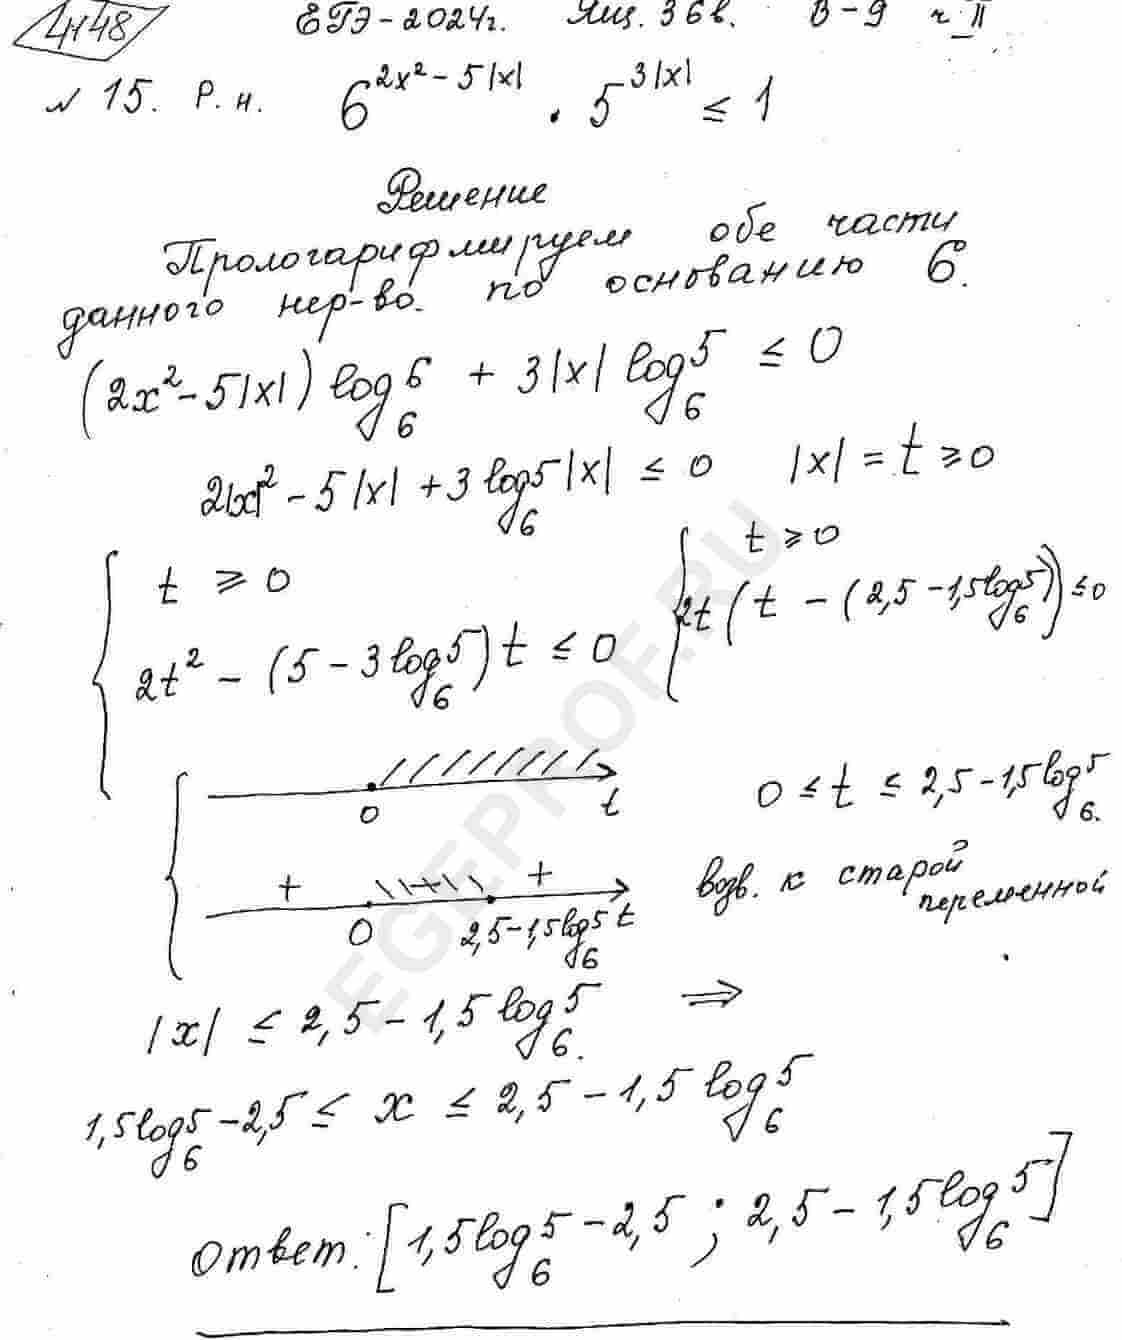 4148 ЕГЭ-2024г. Ящ. 36в. В-9 ч. II
№ 15. Р. н. 6^(2x²-5|x|) · 5^(3|x|) ≤ 1
Решение
Прологарифмируем обе части
данного нер-во. по основанию 6.
(2x²-5|x|) log₆6 + 3|x| log₆5 ≤ 0
2|x|² - 5|x| + 3 log₆5 |x| ≤ 0 |x| = t ≥ 0
{ t ≥ 0
2t² - (5 - 3 log₆5) t ≤ 0
{ t ≥ 0
2t (t - (2,5 - 1,5 log₆5)) ≤ 0
0 t
+ - + 
0 2,5-1,5 log₆5 t
0 ≤ t ≤ 2,5 - 1,5 log₆5.
возв. к старой
переменной
|x| ≤ 2,5 - 1,5 log₆5. ⇒
1,5 log₆5 - 2,5 ≤ x ≤ 2,5 - 1,5 log₆5
Ответ: [1,5 log₆5 - 2,5 ; 2,5 - 1,5 log₆5]
EGEPROF.RU